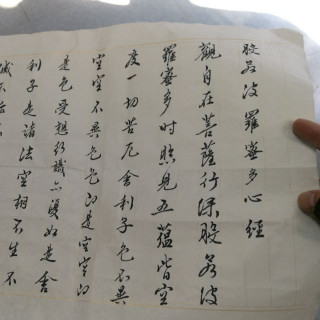 般若波羅蜜多心經
觀自在菩薩行深般若波
羅蜜多時照見五蘊皆空
度一切苦厄舍利子色不異
空空不異色色即是空空即
是色受想行識亦復如是舍
利子是諸法空相不生不
滅不垢